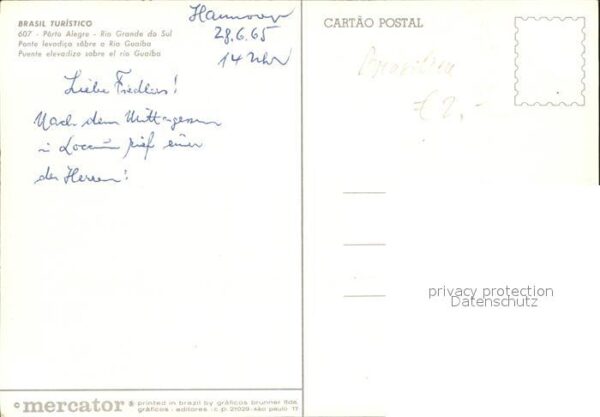 BRASIL TURÍSTICO
607 - Pôrto Alegre - Rio Grande do Sul
Ponte levadiça sôbre o Rio Guaíba
Puente elevadizo sobre el río Guaíba
Hannover
28.6.65
14 Uhr
Liebe Fiedlers!
Nach dem Mittagessen
in Loccum rief einer
der Herren:
CARTÃO POSTAL
Brasilien
€ 2,-
privacy protection
Datenschutz
© mercator ® printed in brazil by gráficos brunner ltda.
gráficos - editores : c p. 21029 - são paulo 17